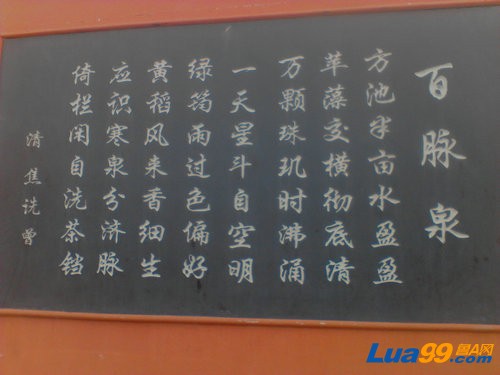 百脉泉
方池半亩水盈盈
苹藻交横彻底清
万颗珠玑时沸涌
一天星斗自空明
绿筠雨过色偏好
黄稻风来香细生
应识寒泉分济脉
倚栏闲自洗茶铛
清焦诜曾
Lua99.com
国A网